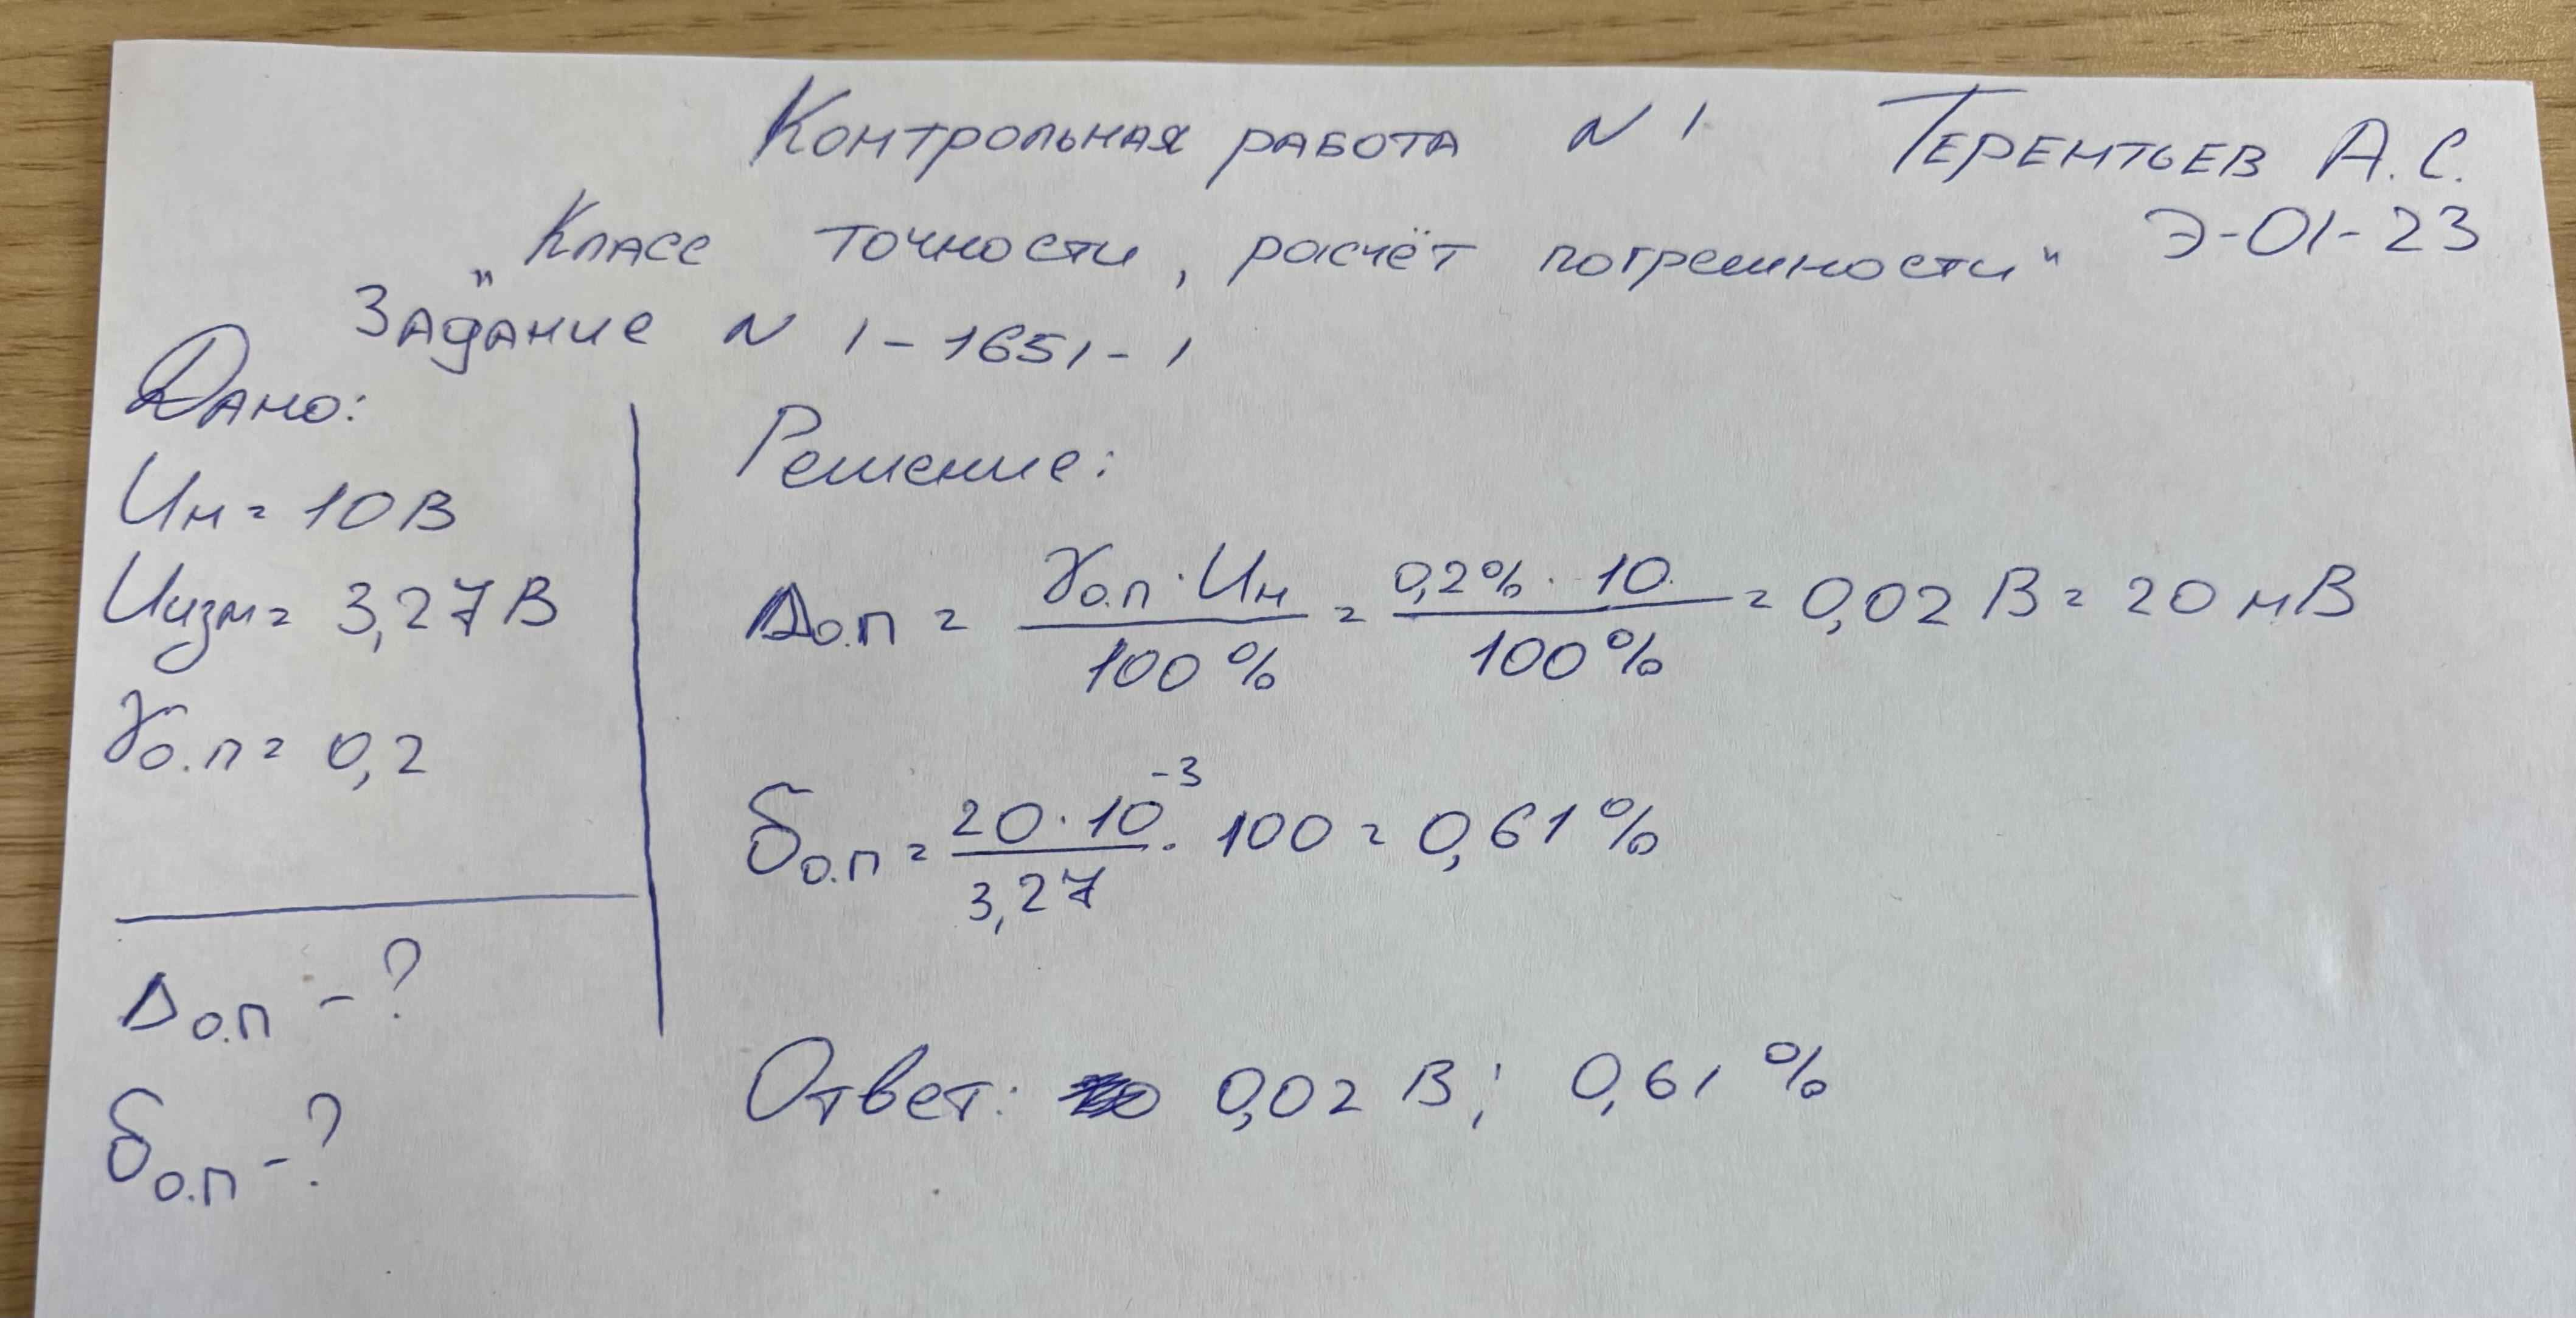 Контрольная работа N 1
Терентьев А.С.
Э-01-23
"Класс точности, расчёт погрешности"
Задание N 1-1651-1
Дано:
Uн = 10 В
Uизм = 3,27 В
γо.п = 0,2
Δо.п - ?
δо.п - ?
Решение:
Δо.п = γо.п · Uн / 100 % = 0,2% · 10 / 100 % = 0,02 В = 20 мВ
δо.п = 20 · 10⁻³ / 3,27 · 100 = 0,61 %
Ответ: 0,02 В; 0,61 %